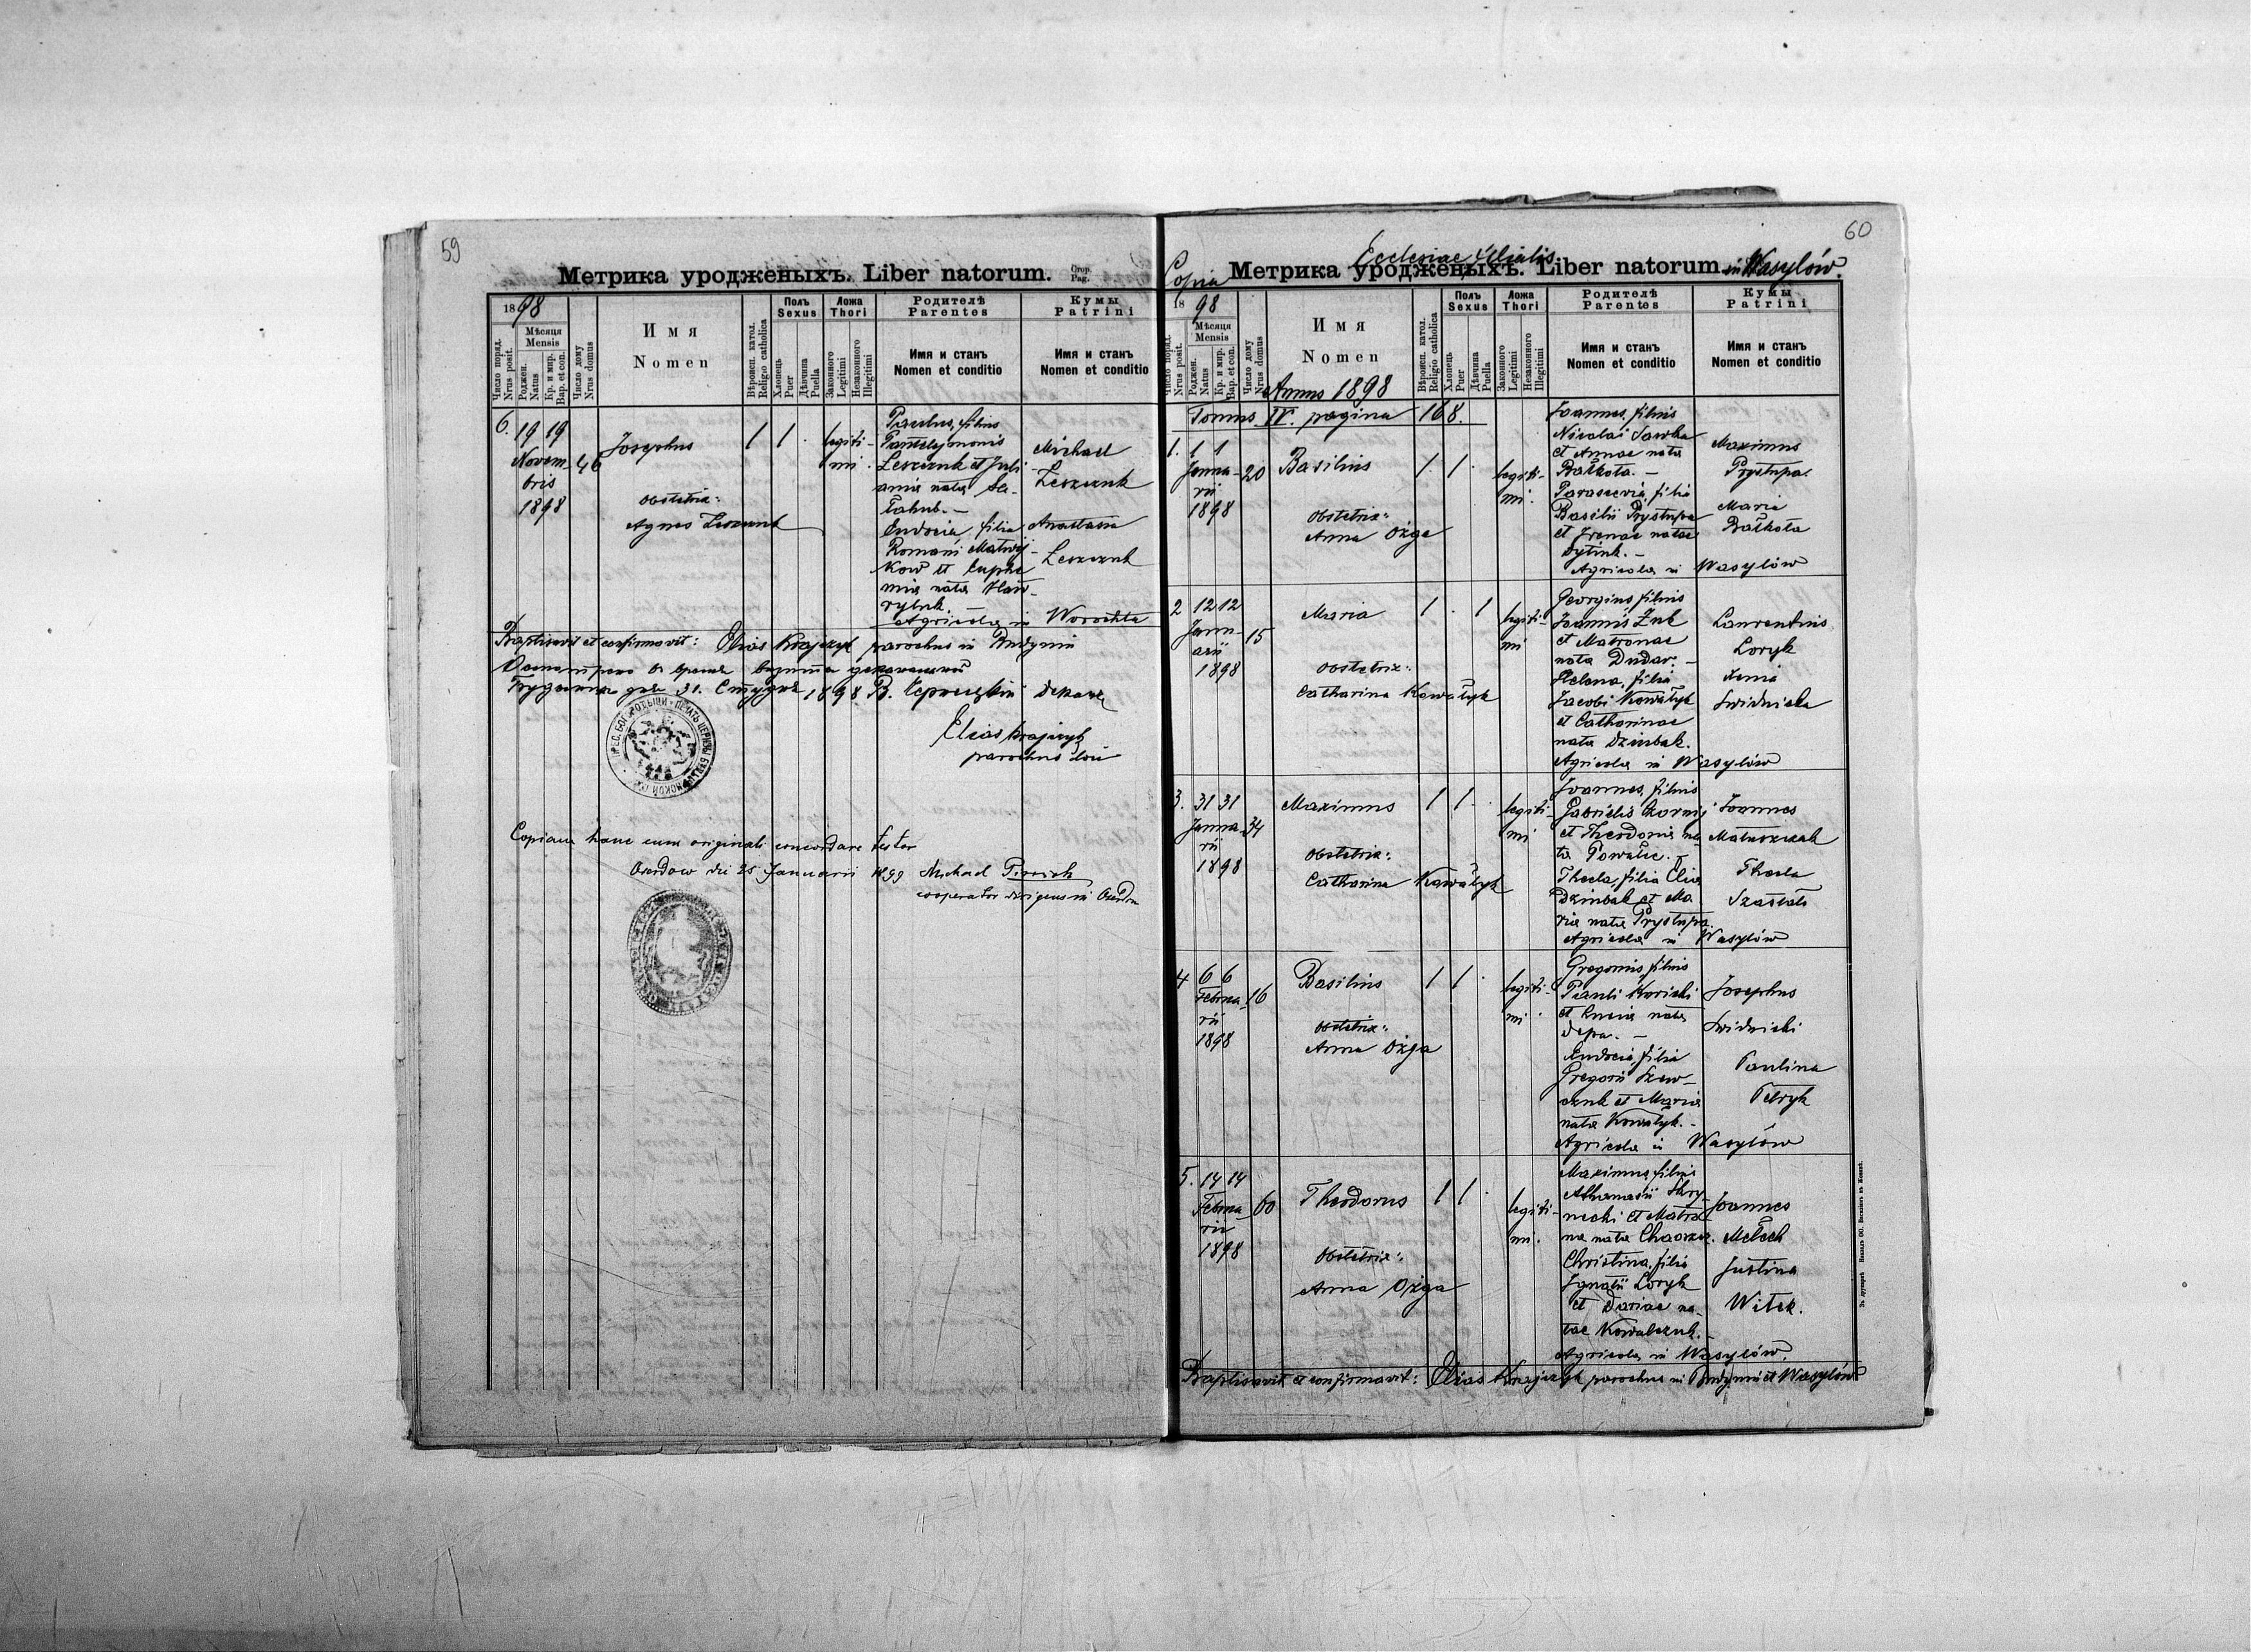 59
Метрика уродженыхъ. Liber natorum.
Стор.
Pag.
1898
Число поряд.
Nrus posit.
Мѣсяця
Mensis
Роджен.
Natus
Кр. и мир.
Bap. et con.
Число дому
Nrus domus
Имя
Nomen
Вѣроисп. катол.
Religio catholica
Полъ
Sexus
Хлопець
Puer
Дѣвчина
Puella
Ложа
Thori
Законного
Legitimi
Незаконного
Illegitimi
Родителѣ
Parentes
Имя и станъ
Nomen et conditio
Кумы
Patrini
Имя и станъ
Nomen et conditio
6.
19 19
Novem-
bris
1898
46
Josephus
obstetrix:
Agnes Leszczuk
1
1
legiti-
mi.
Paulus, filius
Pantelejmonis
Leszczuk et Juli-
anna nata
Eudocia, filia
Romani Matwij-
kow et Euphe
mia nata Haw-
ryluk. —
Agricolae in Worochta
Michael
Leszczuk
Anastasia
Leszczuk
Baptisavit et confirmavit: Elias Krajczyk parochus in Budynin
31. 1898.
Elias Krajczyk
parochus loci
Copiam hanc cum originali concordare testor
die 25 Januarii 1899 Michael
cooperator dirigens in
60
Copia
Ecclesiae filialis
Метрика уродженыхъ. Liber natorum in Wasylów.
1898
Число поряд.
Nrus posit.
Мѣсяця
Mensis
Роджен.
Natus
Кр. и мир.
Bap. et con.
Число дому
Nrus domus
Имя
Nomen
Annus 1898
Вѣроисп. катол.
Religio catholica
Полъ
Sexus
Хлопець
Puer
Дѣвчина
Puella
Ложа
Thori
Законного
Legitimi
Незаконного
Illegitimi
Родителѣ
Parentes
Имя и станъ
Nomen et conditio
Кумы
Patrini
Имя и станъ
Nomen et conditio
Tomus IV. pagina 168.
1.
1 1
Janua-
rii
1898
20
Basilius
Obstetrix:
Anna Ożga
1.
1.
legiti-
mi.
Joannes, filius
Nicolai Sawka
et Annae nata
Bałkota. —
Parascevia, filia
Basilii Prystupa
et Irenae natae
Dytiuk. —
Agricolae in Wasylów
Maximus
Prystupa.
Maria
Bałkota
2
12 12
Janu-
arii
1898
15
Maria
Obstetrix:
Catharina Kowałyk
1
1
legiti-
mi
Georgius, filius
Joannis Żuk
et Matronae
nata Dudar. —
Helena, filia
Jacobi Kowałyk
et Catharinae
nata Dziubak.
Agricolae in Wasylów
Laurentius
Loryk
Xenia
Swidnicka
3.
31 31
Janua-
rii
1898
34
Maximus
Obstetrix:
Catharina Kowałyk
1
1
legiti-
mi
Joannes, filius
Gabrielis Czornij
et Theodosia na-
ta
Thecla, filia Elia
Dziubak et Ma
ria nata Prystupa
Agricolae in Wasylów
Joannes
Matwszczak
Thecla
4
6 6
Februa-
rii
1898
16
Basilius
Obstetrix:
Anna Ożga
1
1
legiti-
mi.
Gregorius, filius
Pauli Koricki
et Lucia nata
Eudocia, filia
Gregorii Szew-
czuk et Maria
nata Kowałyk. —
Agricolae in Wasylów
Josephus
Swidnicki
Paulina
Petryk
5.
14 14
Februa-
rii
1898
60
Theodorus
Obstetrix:
Anna Ożga
1
1
legiti-
mi.
Maximus, filius
Athanasii Skry-
necki et Matro-
na nata
Christina, filia
Ignatii Loryk
et Dariae na-
tae Kowalczuk. —
Agricolae in Wasylów.
Joannes
Mełech
Justina
Witek.
Baptisavit et confirmavit: Elias Krajczyk parochus in Budynin et Wasylów